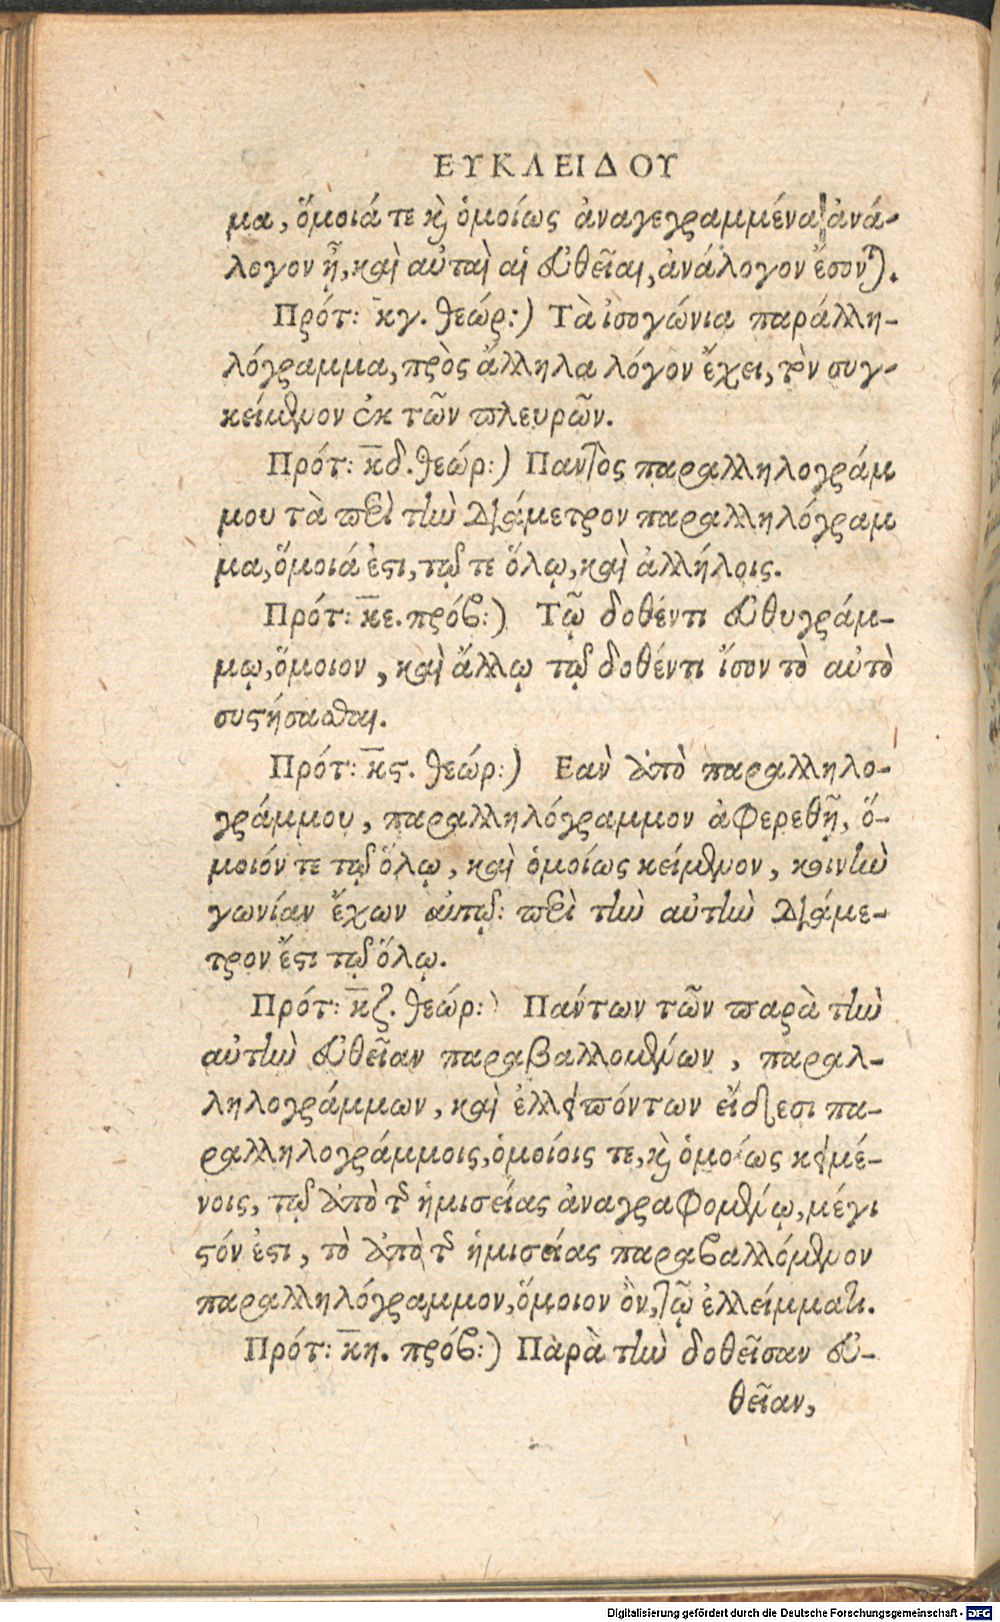 ΕΥΚΛΕΙΔΟΥ
μα, ὅμοιά τε καὶ ὁμοίως ἀναγεγραμμένα ἀνά-
λογον ᾖ, καὶ αὐταὶ αἱ εὐθεῖαι, ἀνάλογον ἔσονται.
Πρότ: κγ. θεώρ:) Τὰ ἰσογώνια παράλλη-
λόγραμμα, πρὸς ἄλληλα λόγον ἔχει, τὸν συγ-
κείμενον ἐκ τῶν πλευρῶν.
Πρότ: κδ. θεώρ:) Παντὸς παραλληλογράμ
μου τὰ περὶ τὴν διάμετρον παραλληλόγραμ
μα, ὅμοιά ἐστι, τῷ τε ὅλῳ, καὶ ἀλλήλοις.
Πρότ: κε. πρόβ:) Τῷ δοθέντι εὐθυγράμ-
μῳ, ὅμοιον, καὶ ἄλλῳ τῷ δοθέντι ἴσον τὸ αὐτὸ
συστήσασθαι.
Πρότ: κς. θεώρ:) Εαν ἀπὸ παραλληλο-
γράμμου, παραλληλόγραμμον ἀφερεθῇ, ὅ-
μοιόν τε τῷ ὅλῳ, καὶ ὁμοίως κείμενον, κοινὴν
γωνίαν ἔχων αὐτῷ: περὶ τὴν αὐτὴν διάμε-
τρον ἔστι τῷ ὅλῳ.
Πρότ: κζ. θεώρ:) Πάντων τῶν παρὰ τὴν
αὐτὴν εὐθεῖαν παραβαλλουμένων, παραλ-
ληλογράμμων, καὶ ἐλλειπόντων εἴδεσι πα-
ραλληλογράμμοις, ὁμοίοις τε, καὶ ὁμοίως κειμέ-
νοις, τῷ ἀπὸ τῆς ἡμισείας ἀναγραφομένῳ, μέγι
στόν ἐστι, τὸ ἀπὸ τῆς ἡμισείας παραβαλλόμενον
παραλληλόγραμμον, ὅμοιον ὂν, τῷ ἐλλείμματι.
Πρότ: κη. πρόβ:) Πὰρὰ τὴν δοθεῖσαν εὐ-
θεῖαν,
Digitalisierung gefördert durch die Deutsche Forschungsgemeinschaft - DFG